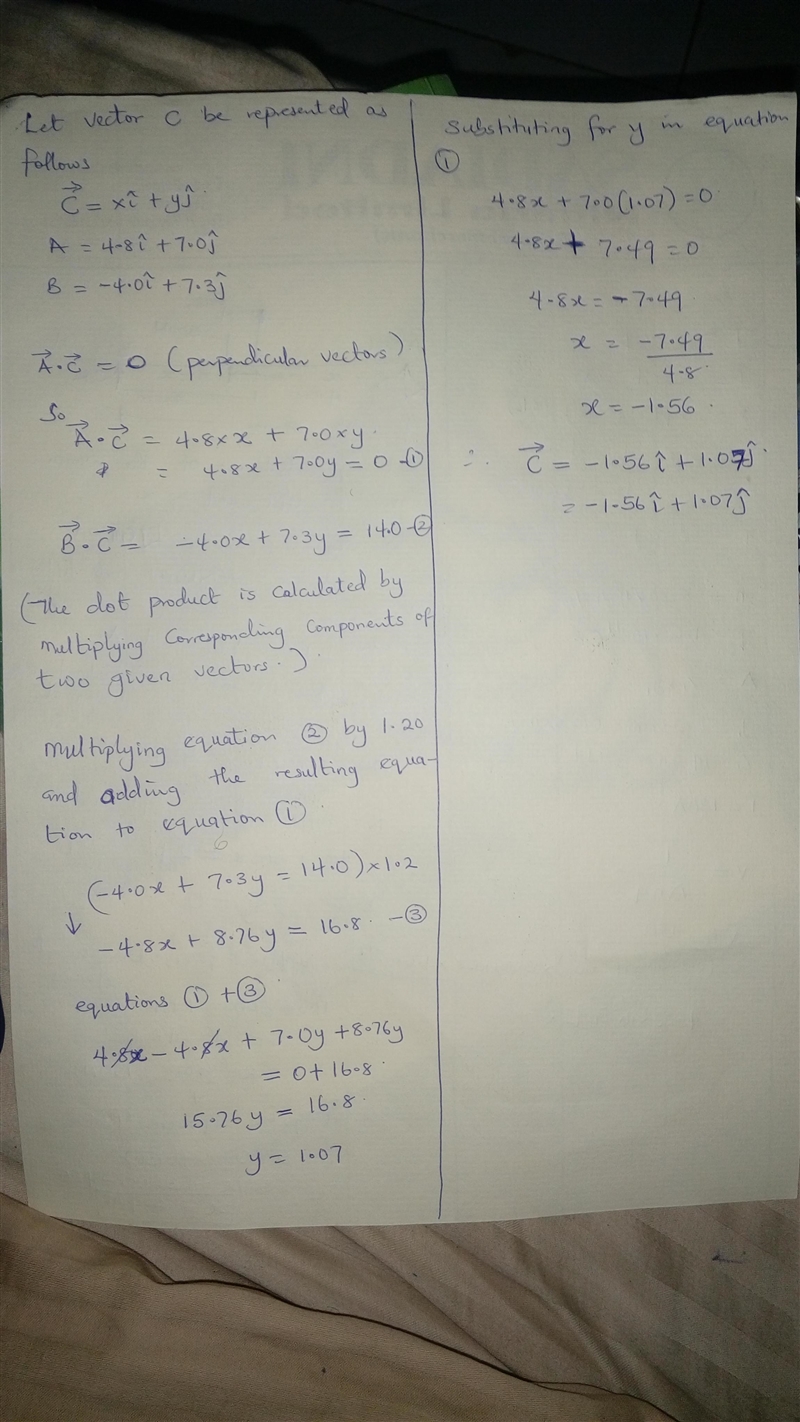 Let vector C be represented as
follows
C⃗ = xî + yĵ
A = 4.8î + 7.0ĵ
B = -4.0î + 7.3ĵ
A⃗.C⃗ = 0 (perpendicular vectors)
So
A⃗.C⃗ = 4.8×x + 7.0×y
= 4.8x + 7.0y = 0 -①
B⃗.C⃗ = -4.0x + 7.3y = 14.0-②
(The dot product is calculated by
multiplying corresponding components of
two given vectors.)
multiplying equation ② by 1.20
and adding the resulting equa-
tion to equation ①
(-4.0x + 7.3y = 14.0)×1.2
↓
-4.8x + 8.76y = 16.8 -③
equations ① + ③
4.8x - 4.8x + 7.0y + 8.76y
= 0 + 16.8
15.76y = 16.8
y = 1.07
Substituting for y in equation
①
4.8x + 7.0(1.07) = 0
4.8x + 7.49 = 0
4.8x = -7.49
x = -7.49
4.8
x = -1.56
∴ C⃗ = -1.56î + 1.07ĵ
= -1.56î + 1.07ĵ